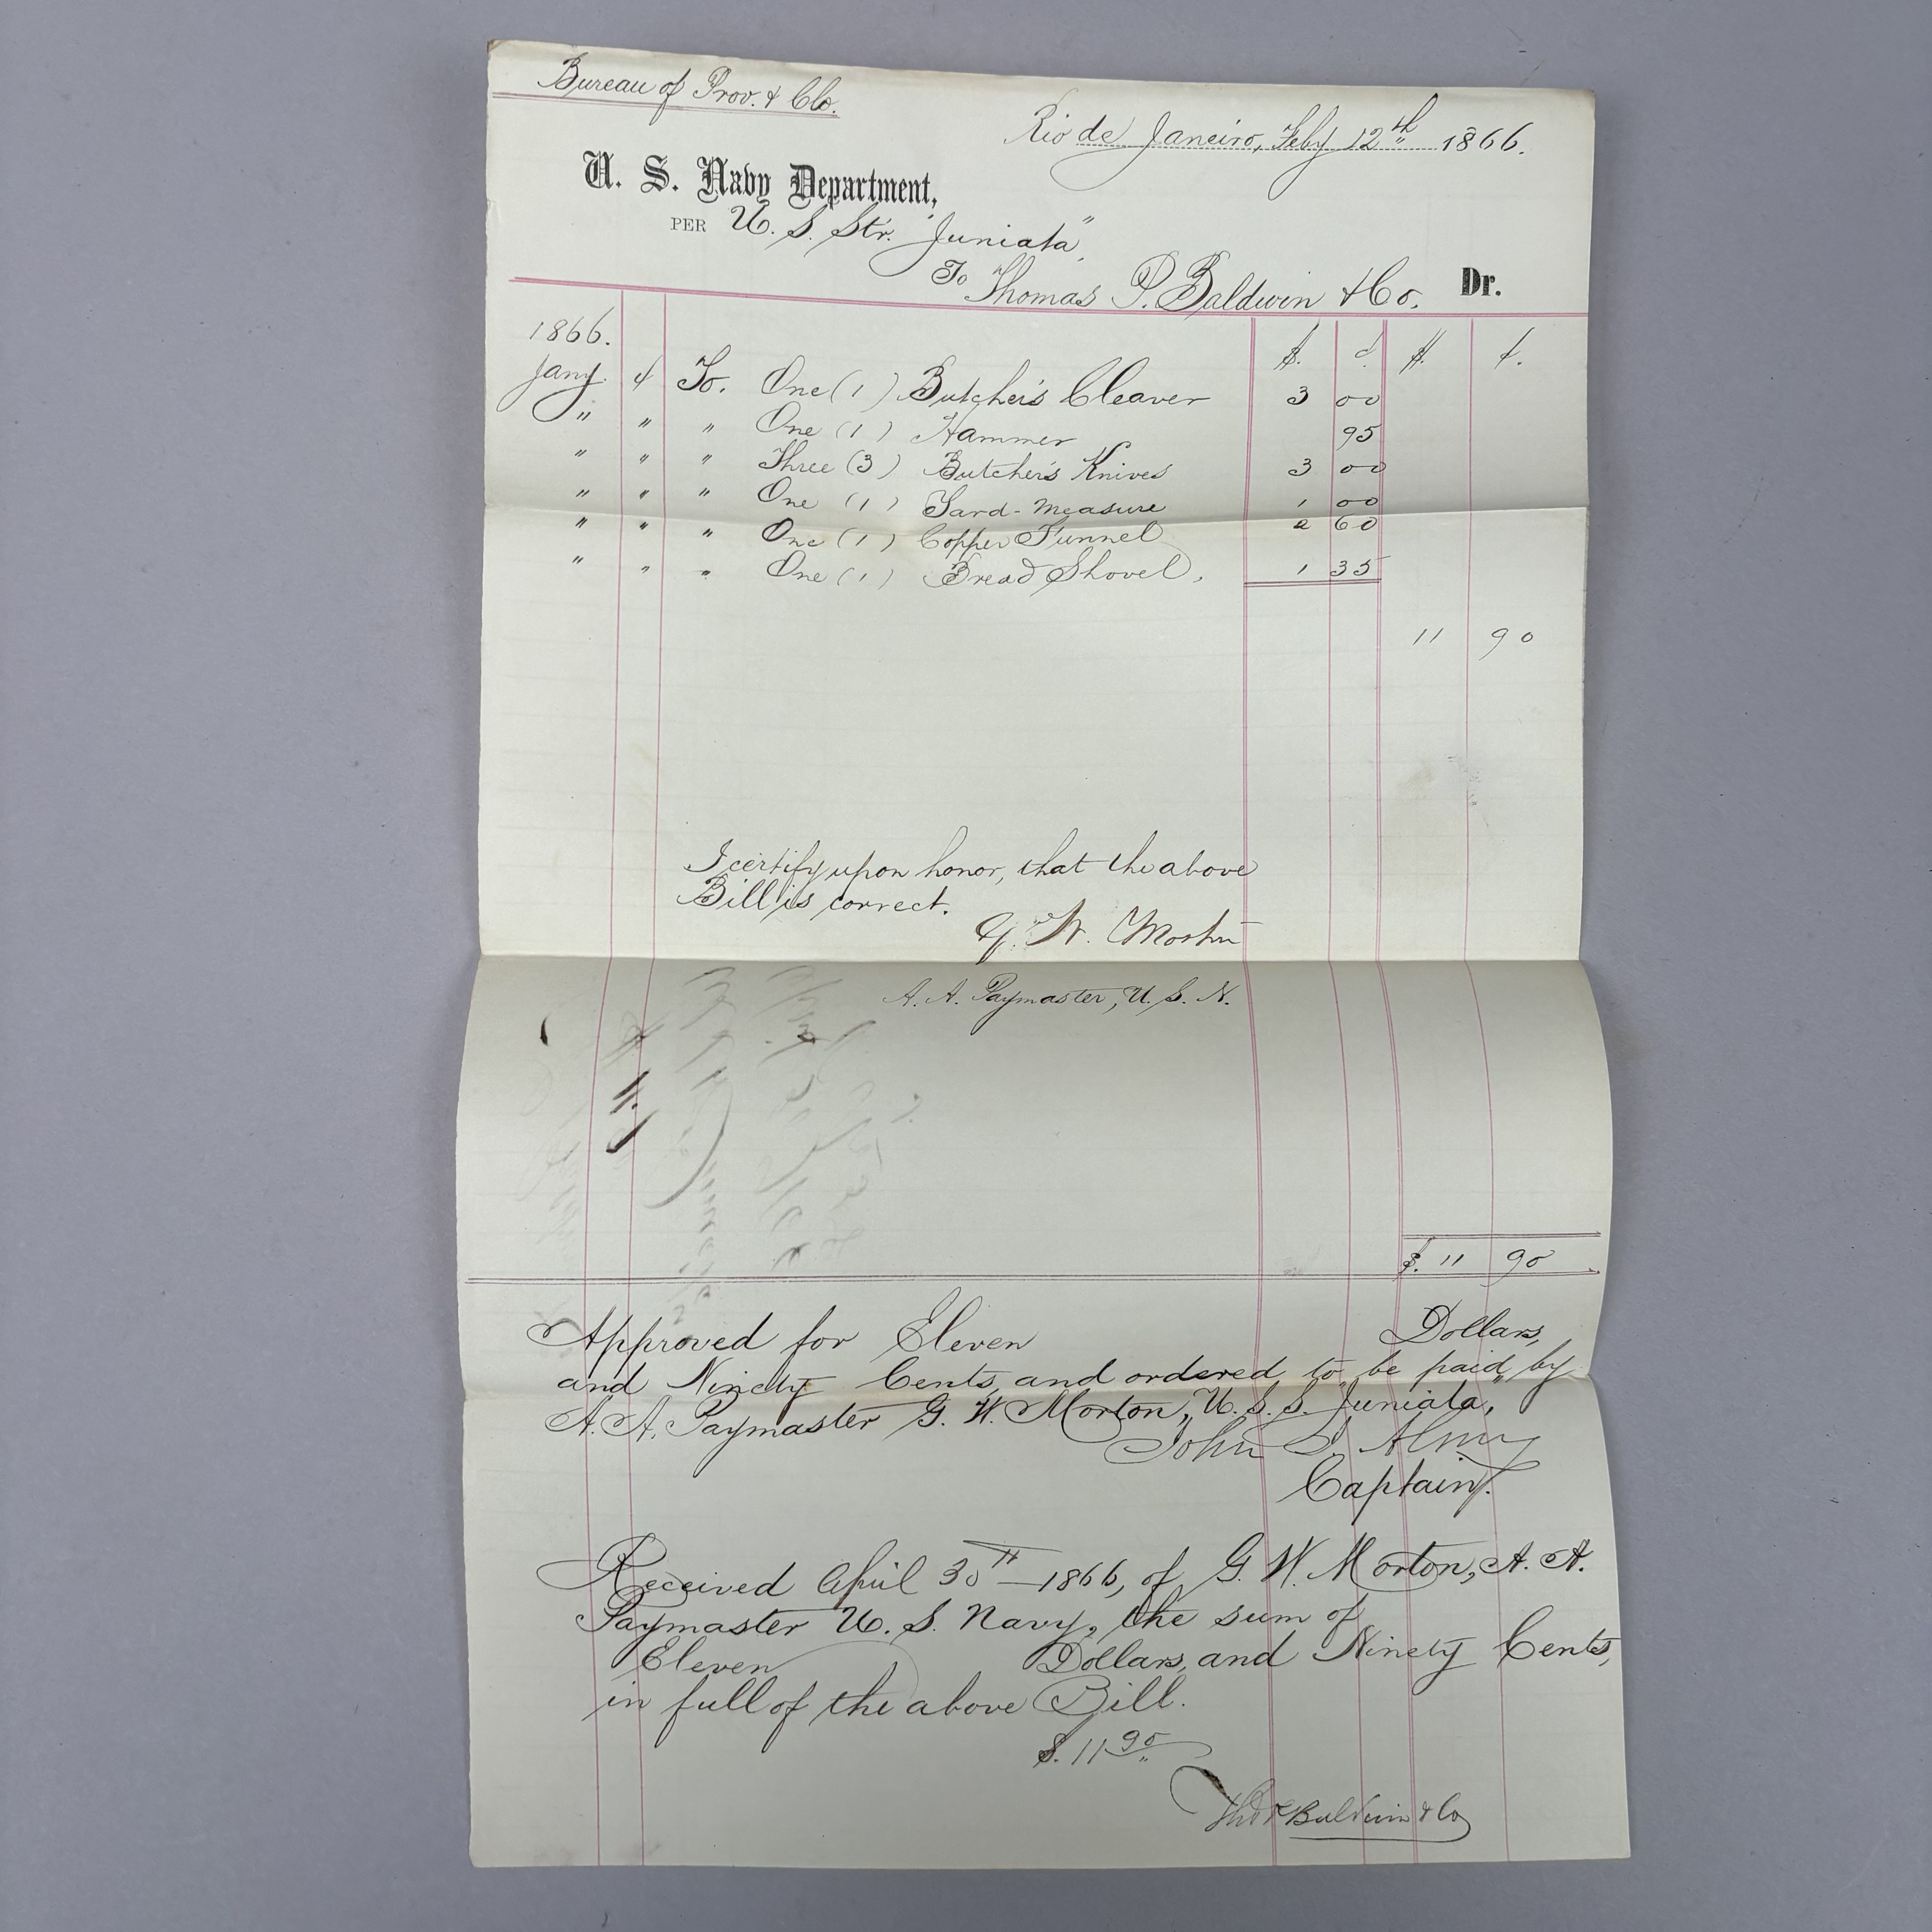 Bureau of Prov. & Clo.
Rio de Janeiro, Feby 12th 1866.
U. S. Navy Department,
PER U. S. Str. "Juniata",
To Thomas P. Baldwin & Co. Dr.
1866. $. ¢. $. ¢.
Jany. 4 To. One (1) Butcher's Cleaver 3 00
" " " One (1) Hammer 95
" " " Three (3) Butcher's Knives 3 00
" " " One (1) Yard-Measure 1 00
" " " One (1) Copper Funnel 2 60
" " " One (1) Bread Shovel, 1 35
11 90
I certify upon honor, that the above
Bill is correct.
G. W. Morton
A. A. Paymaster, U. S. N.
$. 11 90
Approved for Eleven Dollars,
and Ninety Cents, and ordered to be paid, by
A. A. Paymaster G. W. Morton, U. S. S. "Juniata",
John J. Almy
Captain.
Received April 30th 1866, of G. W. Morton, A. A.
Paymaster U. S. Navy, the sum of
Eleven Dollars, and Ninety Cents,
in full of the above Bill.
$. 11 90
Thos P Baldwin & Co